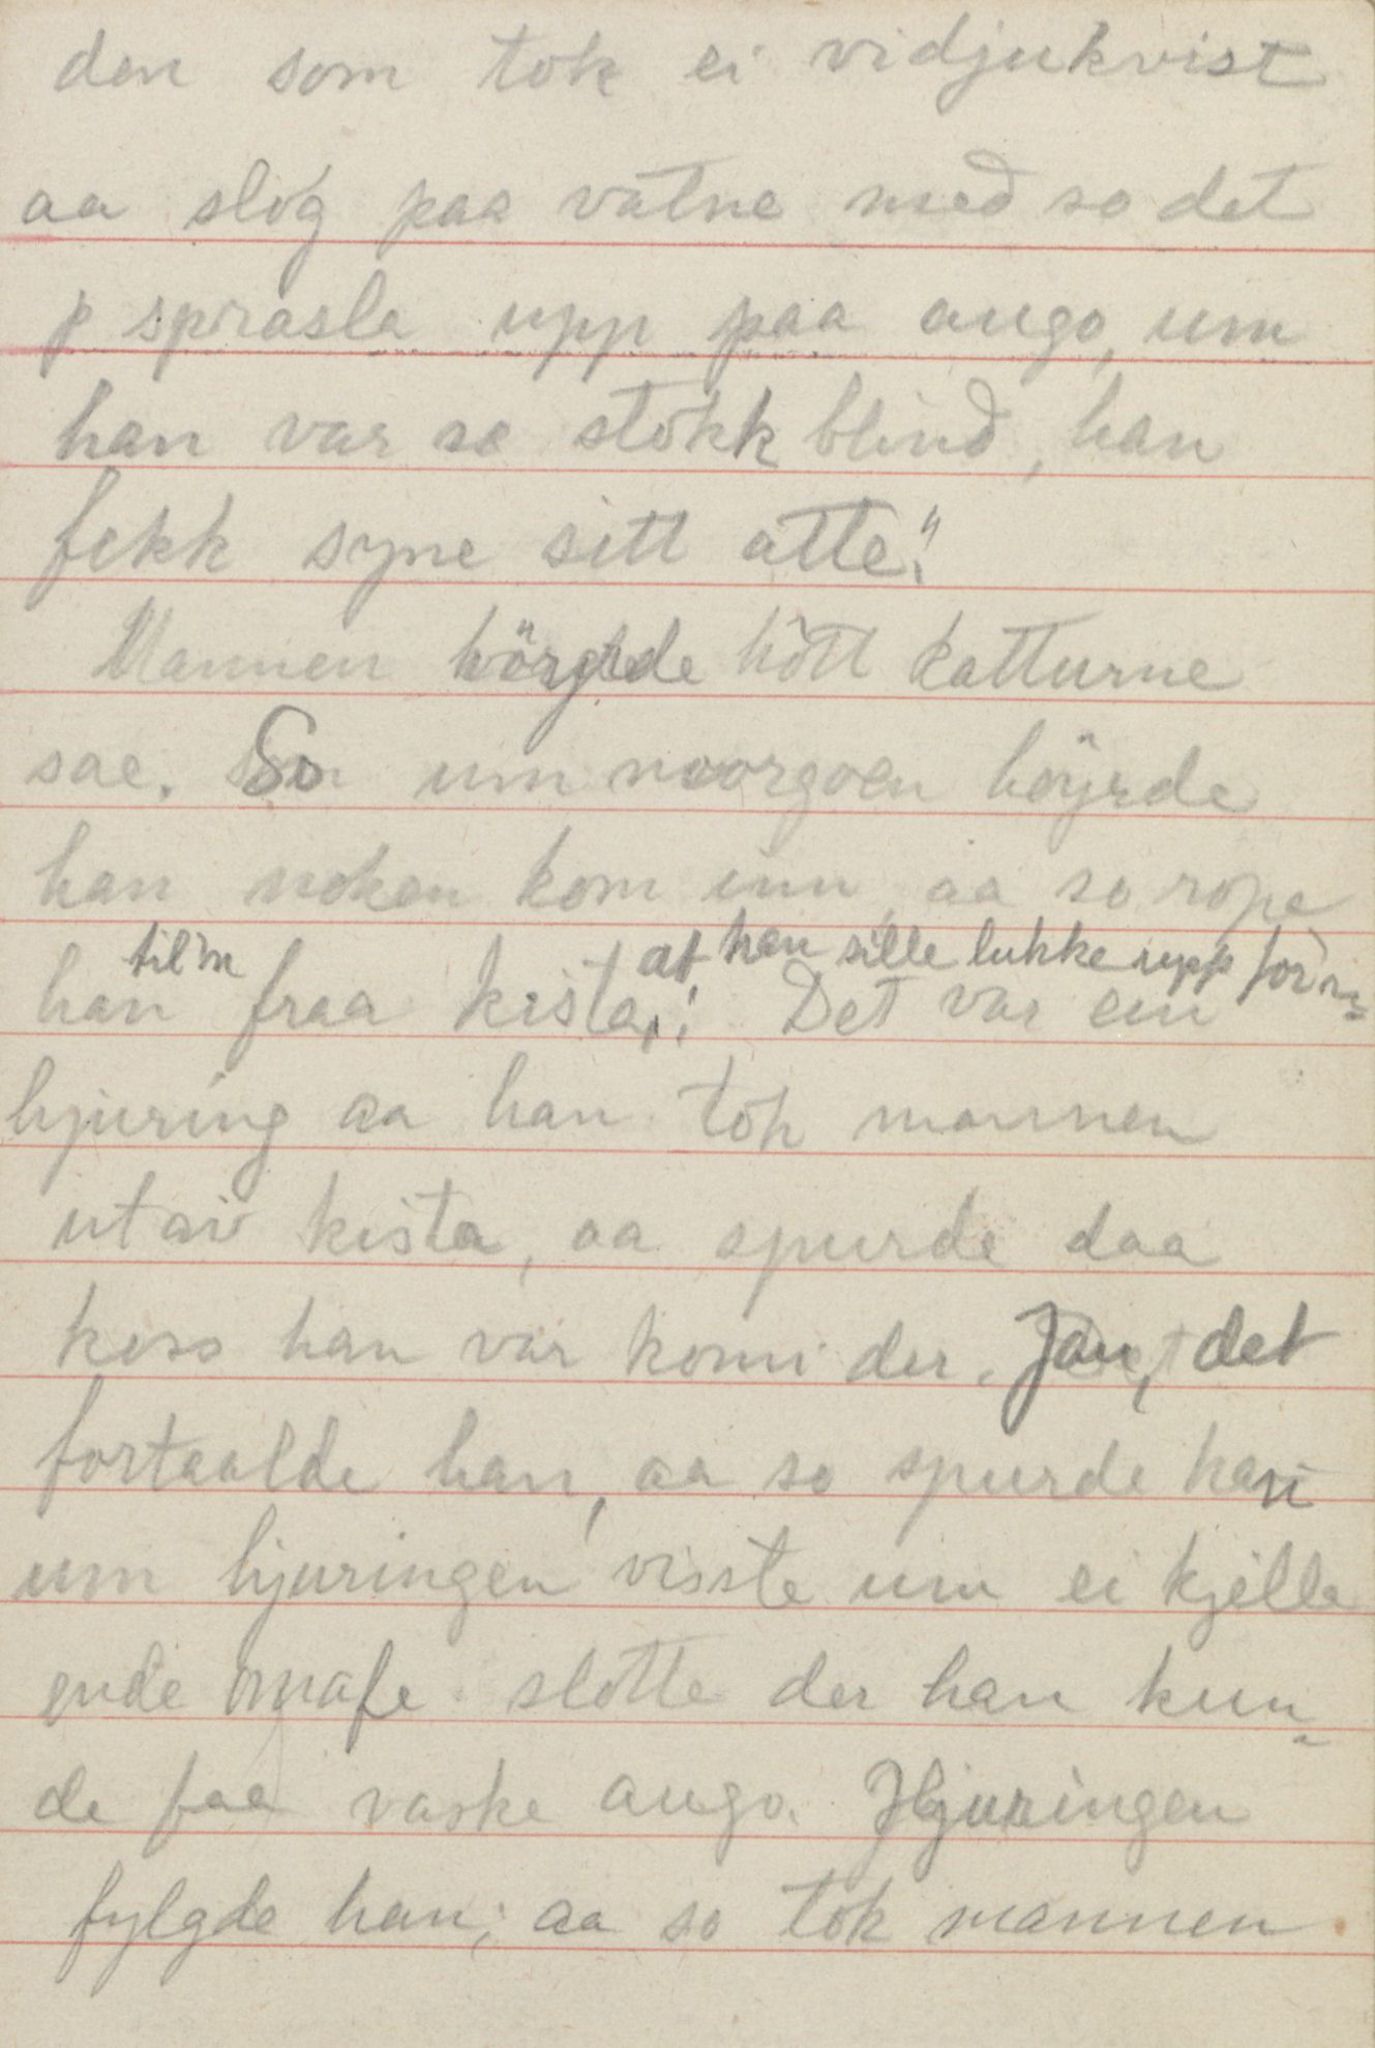 den som tok ei vidjukvist
aa slog paa vatne med so det
sprasla upp paa augo, um
han var so stokk blind, han
fekk syne sitt atte."
Mannen höyrde hött katturne
sae. So um morgoen höyrde
han noken kom inn aa so ropa
til'n at han sille lukke upp for'n
han fraa kista. Det var ein
hjuring aa han tok mannen
utav kista, aa spurde daa
koss han var komi der. Jau, det
fortaalde han, aa so spurde han
um hjuringen visste um ei kjelle
slotte der han kun-
de faa vaske augo. Hjuringen
fylgde han; aa so tok mannen